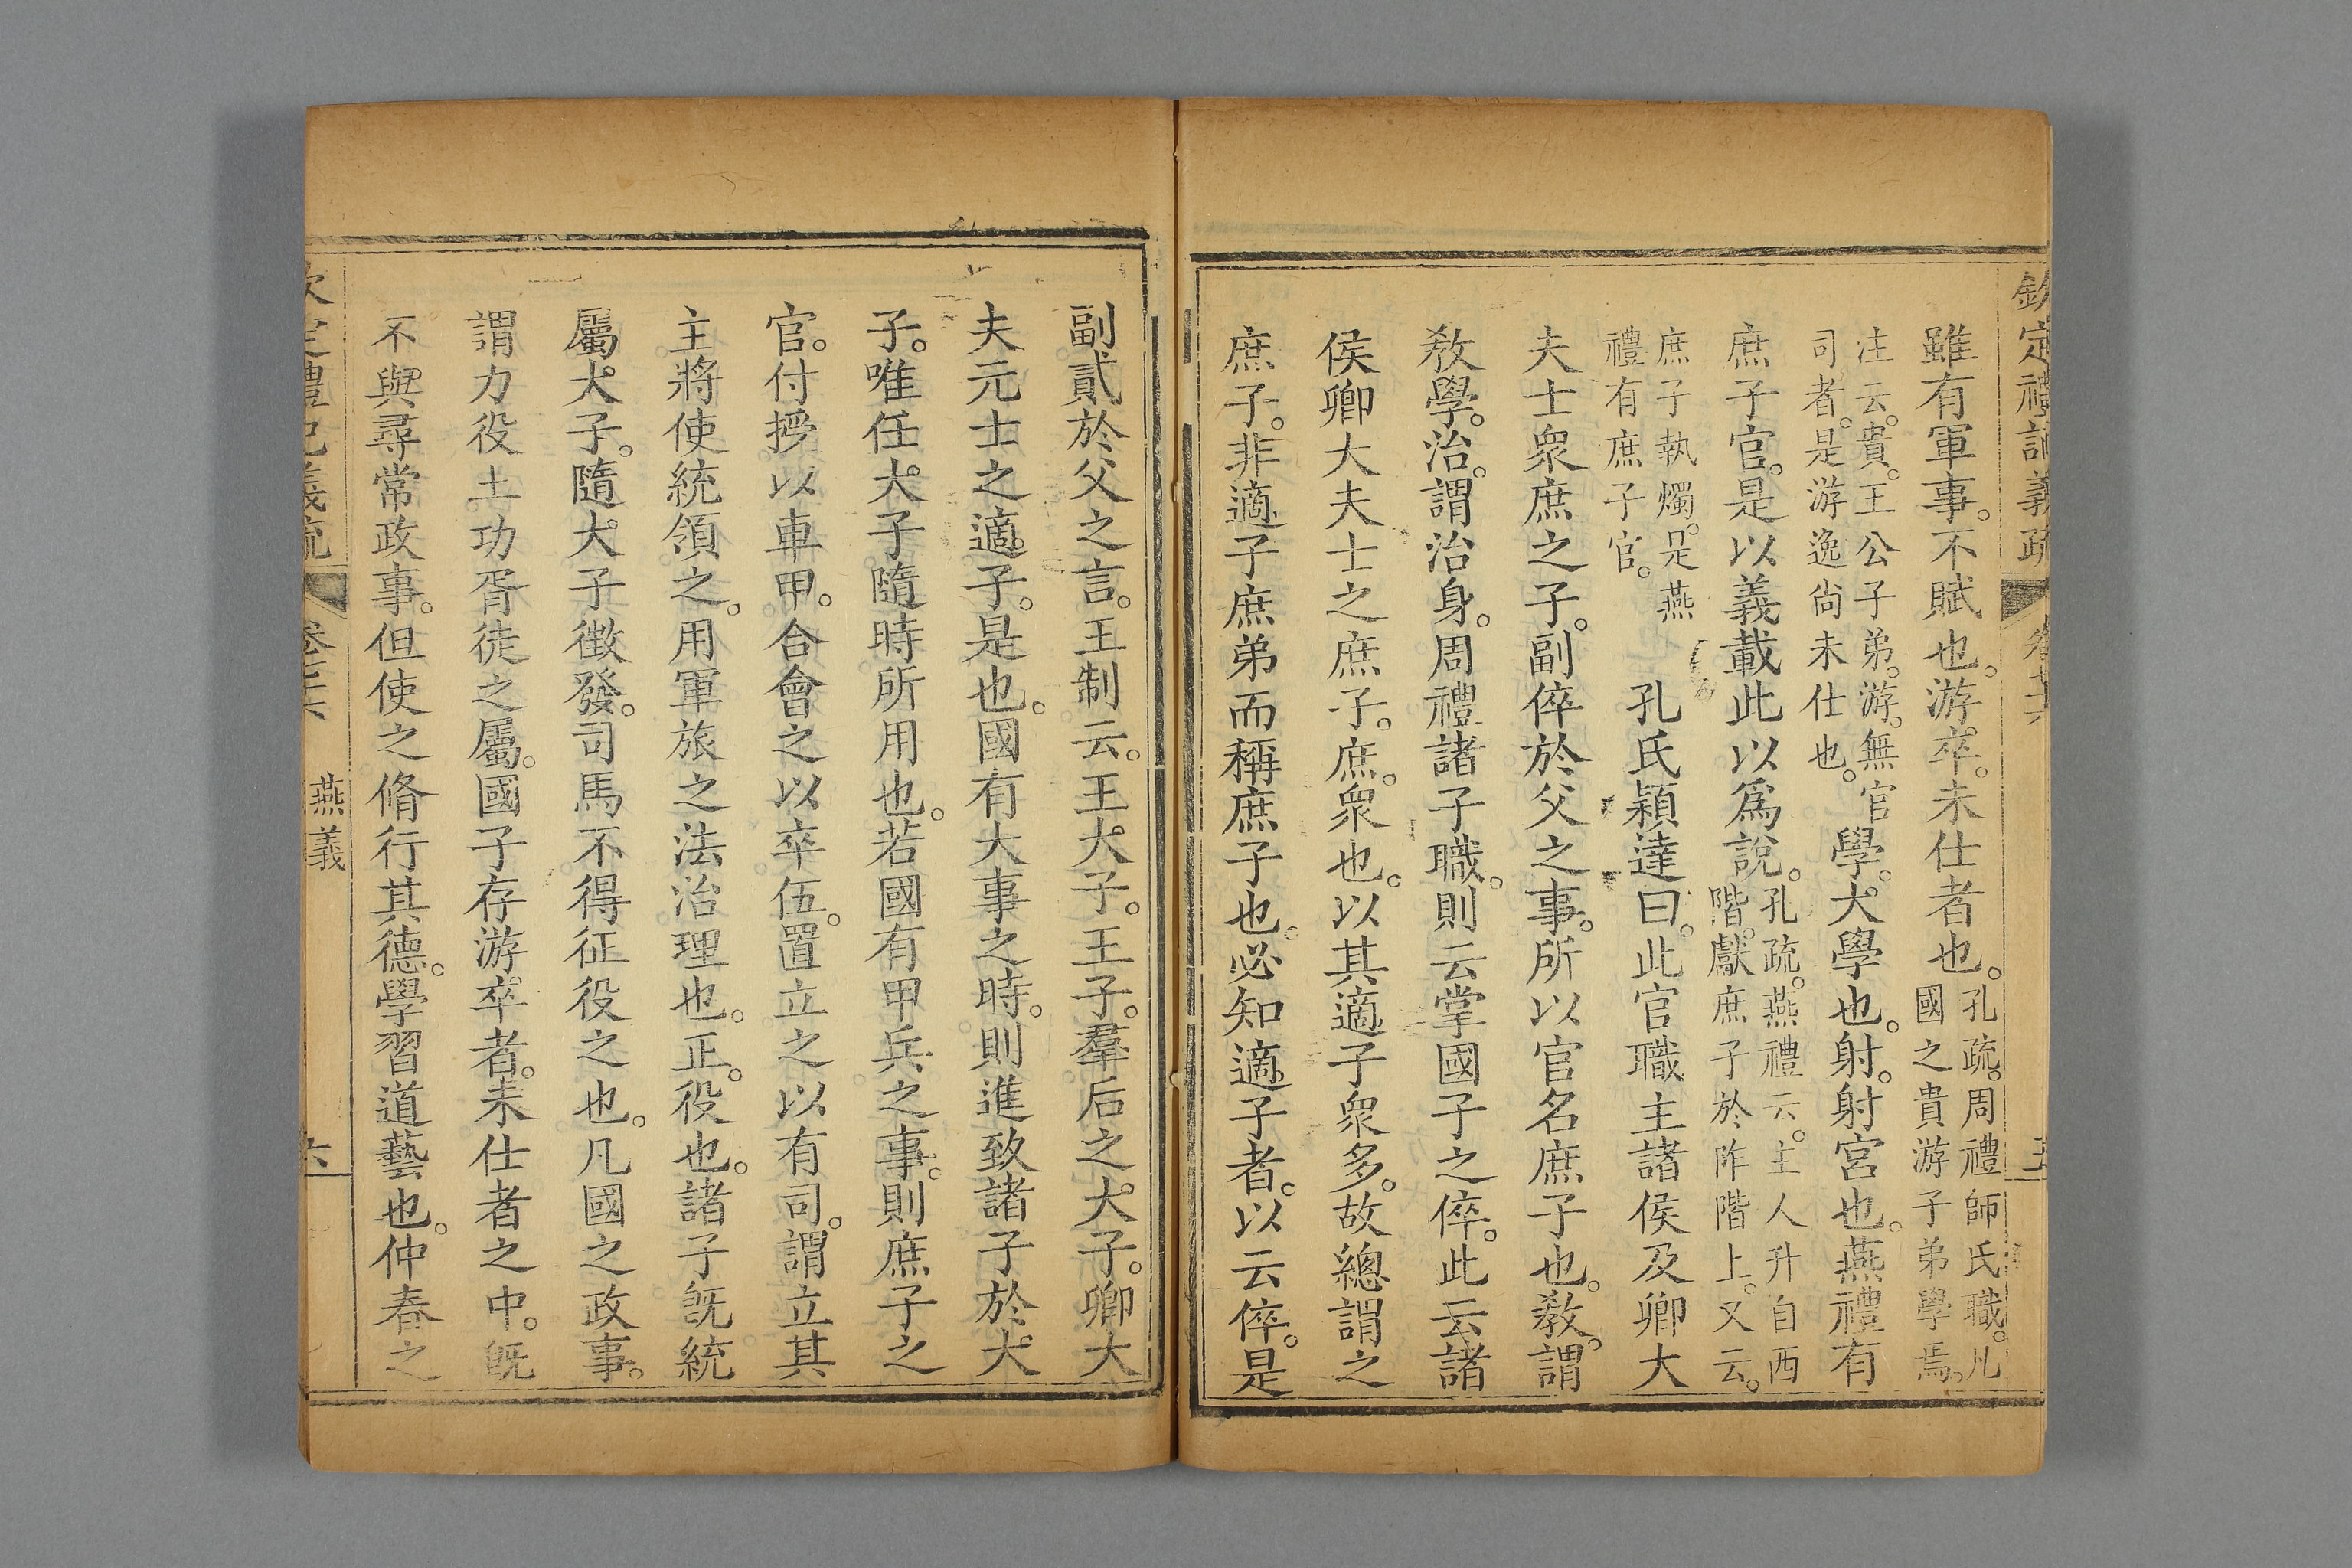 欽定禮記義疏 卷七十六 五
雖有軍事。不賦也。游卒。未仕者也。孔疏。周禮師氏職。凡國之貴游子弟學焉。
注云。貴。王公子弟。游。無官司者。是游逸尚未仕也。學。大學也。射。射宮也。燕禮有
庶子官。是以義載此以爲說。孔疏。燕禮云。主人升自西階。獻庶子於阼階上。又云。
庶子執燭。是燕禮有庶子官。 孔氏穎達曰。此官職主諸侯及卿大
夫士衆庶之子。副倅於父之事。所以官名庶子也。敎。謂
敎學。治。謂治身。周禮諸子職。則云掌國子之倅。此云諸
侯卿大夫士之庶子。庶。衆也。以其適子衆多。故總謂之
庶子。非適子庶弟而稱庶子也。必知適子者。以云倅。是
副貳於父之言。王制云。王大子。王子。羣后之大子。卿大
夫元士之適子。是也。國有大事之時。則進致諸子於大
子。唯任大子隨時所用也。若國有甲兵之事。則庶子之
官。付授以車甲。合會之以卒伍。置立之以有司。謂立其
主將使統領之。用軍旅之法治理也。正。役也。諸子旣統
屬大子。隨大子徵發。司馬不得征役之也。凡國之政事。
謂力役土功胥徒之屬。國子存游卒者。未仕者之中。旣
不與尋常政事。但使之脩行其德。學習道藝也。仲春之
欽定禮記義疏 卷七十六 燕義 六